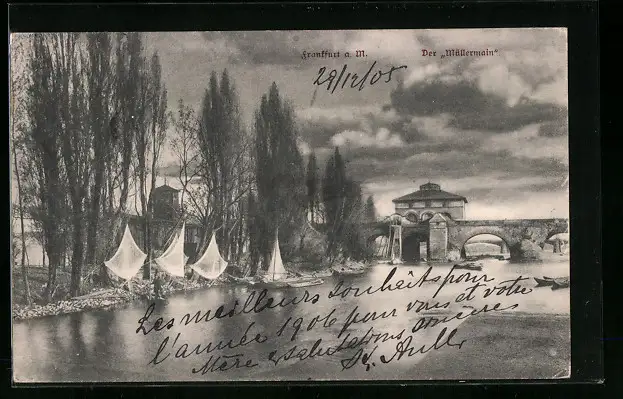 Frankfurt a. M. Der „Müllermain“.
29/12/05
Les meilleurs souhaits pour
l'année 1906 pour vous et votre
Mère & salutations sincères